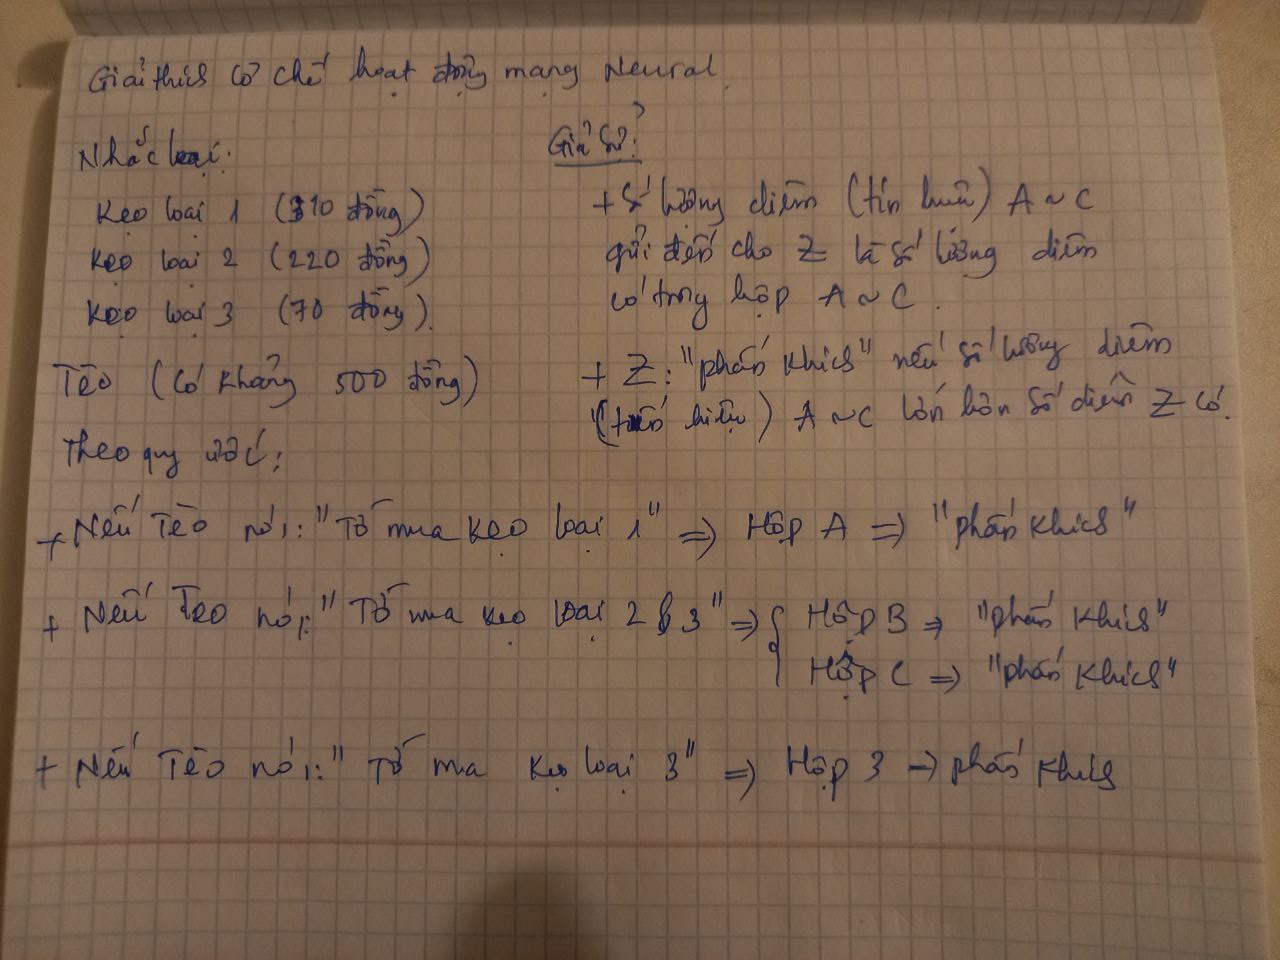 Giải thích cơ chế hoạt động mạng Neural
Nhắc lại:
Kẹo loại 1 (310 đồng)
Kẹo loại 2 (220 đồng)
Kẹo loại 3 (70 đồng).
Tèo (Có khoảng 500 đồng)
Theo quy ước:
Giả sử:
+ Số lượng diêm (tín hiệu) A ~ C
gửi đến cho Z là số lượng diêm
có trong hộp A ~ C.
+ Z: "phấn khích" nếu số lượng diêm
(tín hiệu) A ~ C lớn hơn số diêm Z có.
+ Nếu Tèo nói: "Tớ mua kẹo loại 1" => Hộp A => "phấn khích"
+ Nếu Tèo nói: "Tớ mua kẹo loại 2 & 3" => { Hộp B => "phấn khích"
Hộp C => "phấn khích"
+ Nếu Tèo nói: "Tớ mua kẹo loại 3" => Hộp 3 => phấn khích